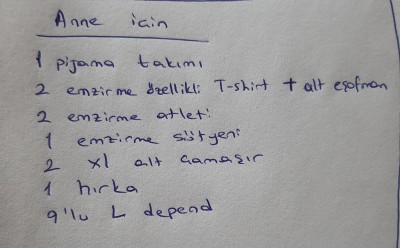 Anne için
1 pijama takımı
2 emzirme özellikli T-shirt + alt eşofman
2 emzirme atleti
1 emzirme sütyeni
2 xl alt çamaşır
1 hırka
9'lu L depend